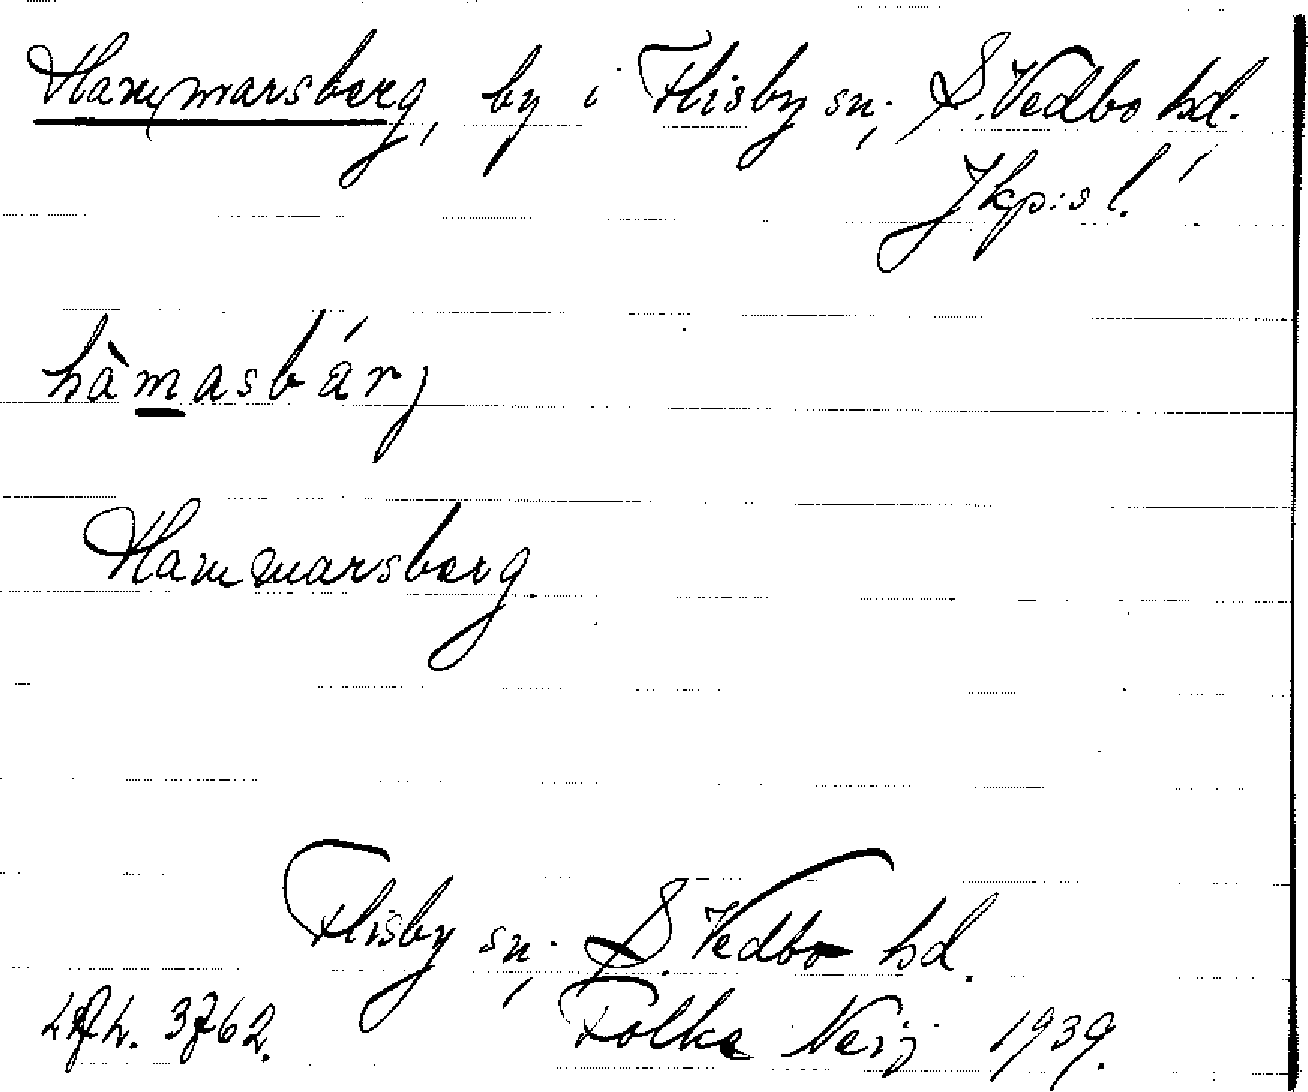 Hammarsberg, by i Flisby sn, S. Vedbo hd.,
Jkp:s l.
hàmasbár,
Hammarsberg
Flisby sn, S. Vedbo hd.
3762.
Folke 1939.